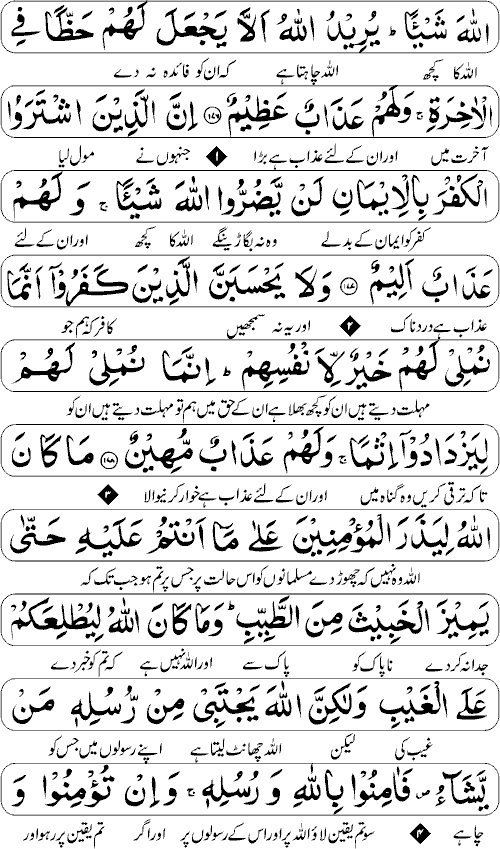 اللهَ شَيْـًٔا ؕ يُرِيْدُ اللهُ اَلَّا يَجْعَلَ لَهُمْ حَظًّا فِی
اللہ کا کچھ اللہ چاہتا ہے کہ ان کو فائدہ نہ دے
الْاٰخِرَةِ ۚ وَلَهُمْ عَذَابٌ عَظِيْمٌ ﴿۱۷۶﴾ اِنَّ الَّذِيْنَ اشْتَرَوُا
آخرت میں اور ان کے لئے عذاب ہے بڑا ۱ جنہوں نے مول لیا
الْكُفْرَ بِالْاِيْمَانِ لَنْ يَّضُرُّوا اللهَ شَيْـًٔا ۚ وَ لَهُمْ
کفر کو ایمان کے بدلے وہ نہ بگاڑینگے اللہ کا کچھ اور ان کے لئے
عَذَابٌ اَلِيْمٌ ﴿۱۷۷﴾ وَلَا يَحْسَبَنَّ الَّذِيْنَ كَفَرُوْۤا اَنَّمَا
عذاب ہے دردناک ۲ اور یہ نہ سمجھیں کافر کہ ہم جو
نُمْلِیْ لَهُمْ خَيْرٌ لِّاَنْفُسِهِمْ ؕ اِنَّمَا نُمْلِیْ لَهُمْ
مہلت دیتے ہیں ان کو کچھ بھلا ہے ان کے حق میں ہم تو مہلت دیتے ہیں ان کو
لِيَزْدَادُوْۤا اِثْمًا ۚ وَلَهُمْ عَذَابٌ مُّهِيْنٌ ﴿۱۷۸﴾ مَا كَانَ
تاکہ ترقی کریں وہ گناہ میں اور ان کے لئے عذاب ہے خوار کرنیوالا ۳
اللهُ لِيَذَرَ الْمُؤْمِنِيْنَ عَلٰی مَاۤ اَنْتُمْ عَلَيْهِ حَتّٰی
اللہ وہ نہیں کہ چھوڑ دے مسلمانوں کو اس حالت پر جس پر تم ہو جب تک کہ
يَمِيْزَ الْخَبِيْثَ مِنَ الطَّيِّبِ ؕ وَمَا كَانَ اللهُ لِيُطْلِعَكُمْ
جدا نہ کر دے ناپاک کو پاک سے اور اللہ نہیں ہے کہ تم کو خبر دے
عَلَی الْغَيْبِ وَلٰكِنَّ اللهَ يَجْتَبِیْ مِنْ رُّسُلِهٖ مَنْ
غیب کی لیکن اللہ چھانٹ لیتا ہے اپنے رسولوں میں جس کو
يَّشَآءُ ۪ فَاٰمِنُوْا بِاللهِ وَ رُسُلِهٖ ۚ وَ اِنْ تُؤْمِنُوْا وَ
چاہے ۴ سو تم یقین لاؤ اللہ پر اور اس کے رسولوں پر اور اگر تم یقین پر رہو اور